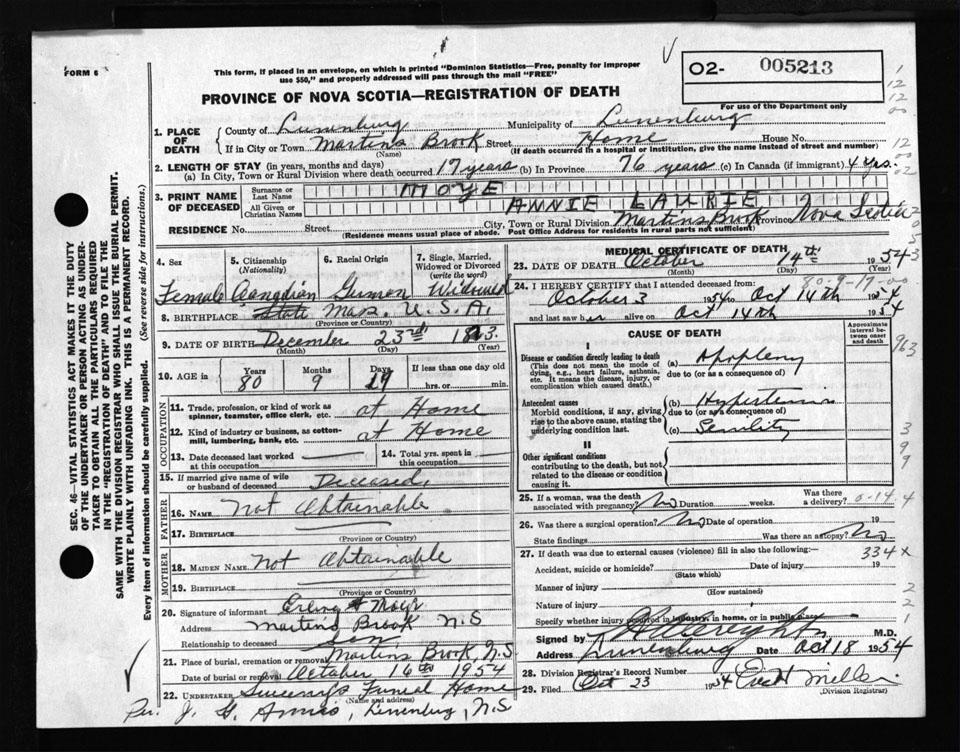 FORM 6
This form, if placed in an envelope, on which is printed "Dominion Statistics—Free, penalty for improper
use $50," and properly addressed will pass through the mail "FREE"
O2- 005213
PROVINCE OF NOVA SCOTIA—REGISTRATION OF DEATH
For use of the Department only
1. PLACE OF DEATH
County of Lunenburg Municipality of Lunenburg
If in City or Town Martins Brook Street Home House No.
(Name) (If death occurred in a hospital or institution, give the name instead of street and number)
2. LENGTH OF STAY (in years, months and days)
(a) In City, Town or Rural Division where death occurred 17 years (b) In Province 76 years (c) In Canada (if immigrant) 4 yrs.
3. PRINT NAME OF DECEASED
Surname or Last Name MOYE
All Given or Christian Names ANNIE LAURIE
RESIDENCE No. Street City, Town or Rural Division Martins Brook Province Nova Scotia
(Residence means usual place of abode. Post Office Address for residents in rural parts not sufficient)
4. Sex
Female
5. Citizenship
(Nationality)
Canadian
6. Racial Origin
German
7. Single, Married,
Widowed or Divorced
(write the word)
Widowed
8. BIRTHPLACE State Mass. U.S.A.
(Province or Country)
9. DATE OF BIRTH December 23rd
(Month) (Day) (Year)
10. AGE in
Years Months Days If less than one day old
80 9 hrs. or min.
OCCUPATION
11. Trade, profession, or kind of work as
spinner, teamster, office clerk, etc. at Home
12. Kind of industry or business, as cotton-
mill, lumbering, bank, etc. at Home
13. Date deceased last worked
at this occupation
14. Total yrs. spent in
this occupation
15. If married give name of wife
or husband of deceased Deceased.
FATHER
16. NAME Not Obtainable
17. BIRTHPLACE
(Province or Country)
MOTHER
18. MAIDEN NAME Not Obtainable
19. BIRTHPLACE
(Province or Country)
20. Signature of informant
Address Martins Brook N.S
Relationship to deceased Son
21. Place of burial, cremation or removal Martins Brook N.S.
Date of burial or removal October 16th 1954
22. UNDERTAKER Funeral Home
(Name and address)
Per. J. Lunenburg, N.S
MEDICAL CERTIFICATE OF DEATH
23. DATE OF DEATH October 14th 1954
(Month) (Day) (Year)
24. I HEREBY CERTIFY that I attended deceased from: 80-9-17-00
October 3 1954 to Oct 14th
and last saw her alive on Oct 14th
CAUSE OF DEATH
Approximate interval between onset and death
I
Disease or condition directly leading to death
(This does not mean the mode of
dying, e.g., heart failure, asthenia,
etc. It means the disease, injury, or
complication which caused death.)
(a) Apoplexy
due to (or as a consequence of)
Antecedent causes
Morbid conditions, if any, giving
rise to the above cause, stating the
underlying condition last.
(b) Hypertension
due to (or as a consequence of)
(c) Senility
II
Other significant conditions
contributing to the death, but not
related to the disease or condition
causing it.
25. If a woman, was the death
associated with pregnancy? No Duration weeks. Was there a delivery? 0-14-4
26. Was there a surgical operation? No Date of operation 19
State findings Was there an autopsy? No
27. If death was due to external causes (violence) fill in also the following:— 334x
Accident, suicide or homicide? Date of injury 19
(State which)
Manner of injury
(How sustained)
Nature of injury
Specify whether injury occurred in industry, in home, or in public place
Signed by M.D.
Address Lunenburg Date Oct 18 1954
28. Division Registrar's Record Number
29. Filed Oct 23 1954
(Division Registrar)
SEC. 46—VITAL STATISTICS ACT MAKES IT THE DUTY
OF THE UNDERTAKER OR PERSON ACTING AS UNDER-
TAKER TO OBTAIN ALL THE PARTICULARS REQUIRED
IN THE "REGISTRATION OF DEATH" AND TO FILE THE
SAME WITH THE DIVISION REGISTRAR WHO SHALL ISSUE THE BURIAL PERMIT.
WRITE PLAINLY WITH UNFADING INK. THIS IS A PERMANENT RECORD.
Every item of information should be carefully supplied. (See reverse side for instructions.)